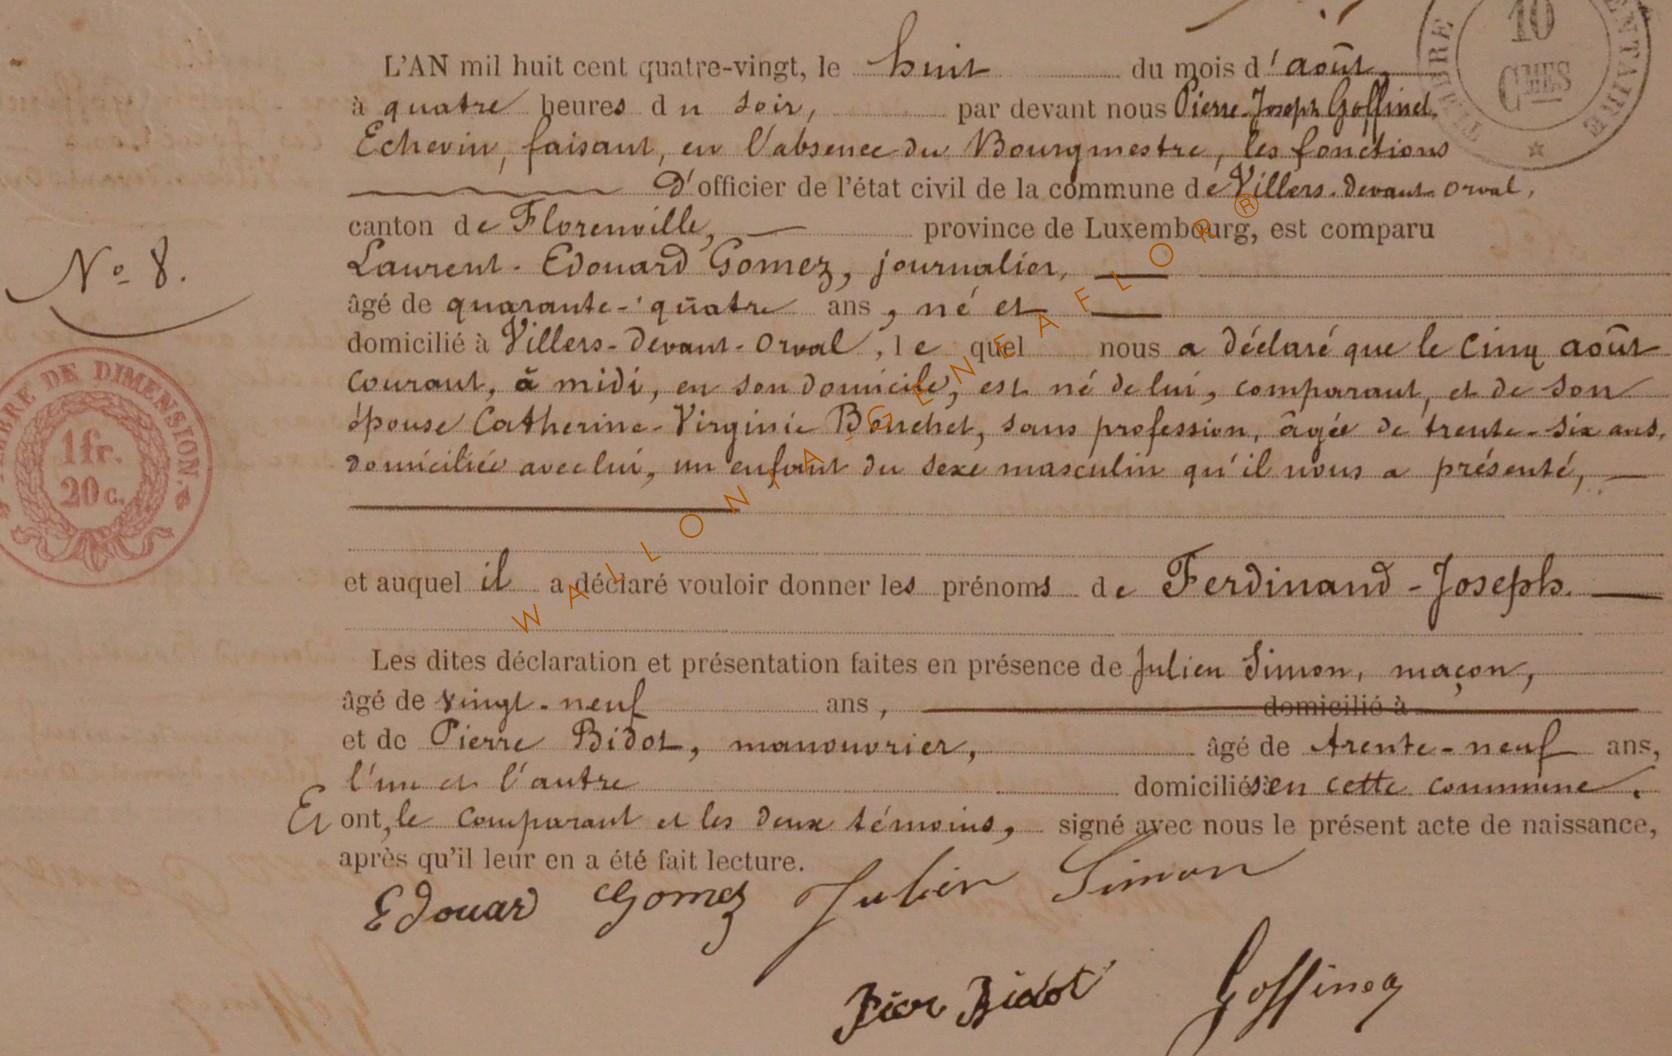 L'AN mil huit cent quatre-vingt, le huit du mois d'août,
à quatre heures du soir, par devant nous Pierre-Joseph Goffinet,
Echevin, faisant, en l'absence du Bourgmestre, les fonctions
D'officier de l'état civil de la commune de Villers-devant-Orval,
canton de Florenville, province de Luxembourg, est comparu
Laurent-Edouard Gomez, journalier,
âgé de quarante-quatre ans, né et
domicilié à Villers-devant-Orval, lequel nous a déclaré que le cinq août
courant, à midi, en son domicile, est né de lui, comparant, et de son
épouse Catherine-Virginie Bouchet, sans profession, âgée de trente-six ans,
domiciliée avec lui, un enfant du sexe masculin qu'il nous a présenté,
et auquel il a déclaré vouloir donner les prénoms de Ferdinand-Joseph.
Les dites déclaration et présentation faites en présence de Julien Simon, maçon,
âgé de vingt-neuf ans, domicilié à
et de Pierre Bidot, manouvrier, âgé de trente-neuf ans,
l'un et l'autre domiciliés en cette commune.
Et ont, le comparant et les deux témoins, signé avec nous le présent acte de naissance,
après qu'il leur en a été fait lecture.
Edouard Gomez Julien Simon
Bidot Goffinet
No 8.
TIMBRE DE DIMENSION.
1 fr.
20 c.
TIMBRE
10
CMES
WALLONIA-GENEAFLOR®